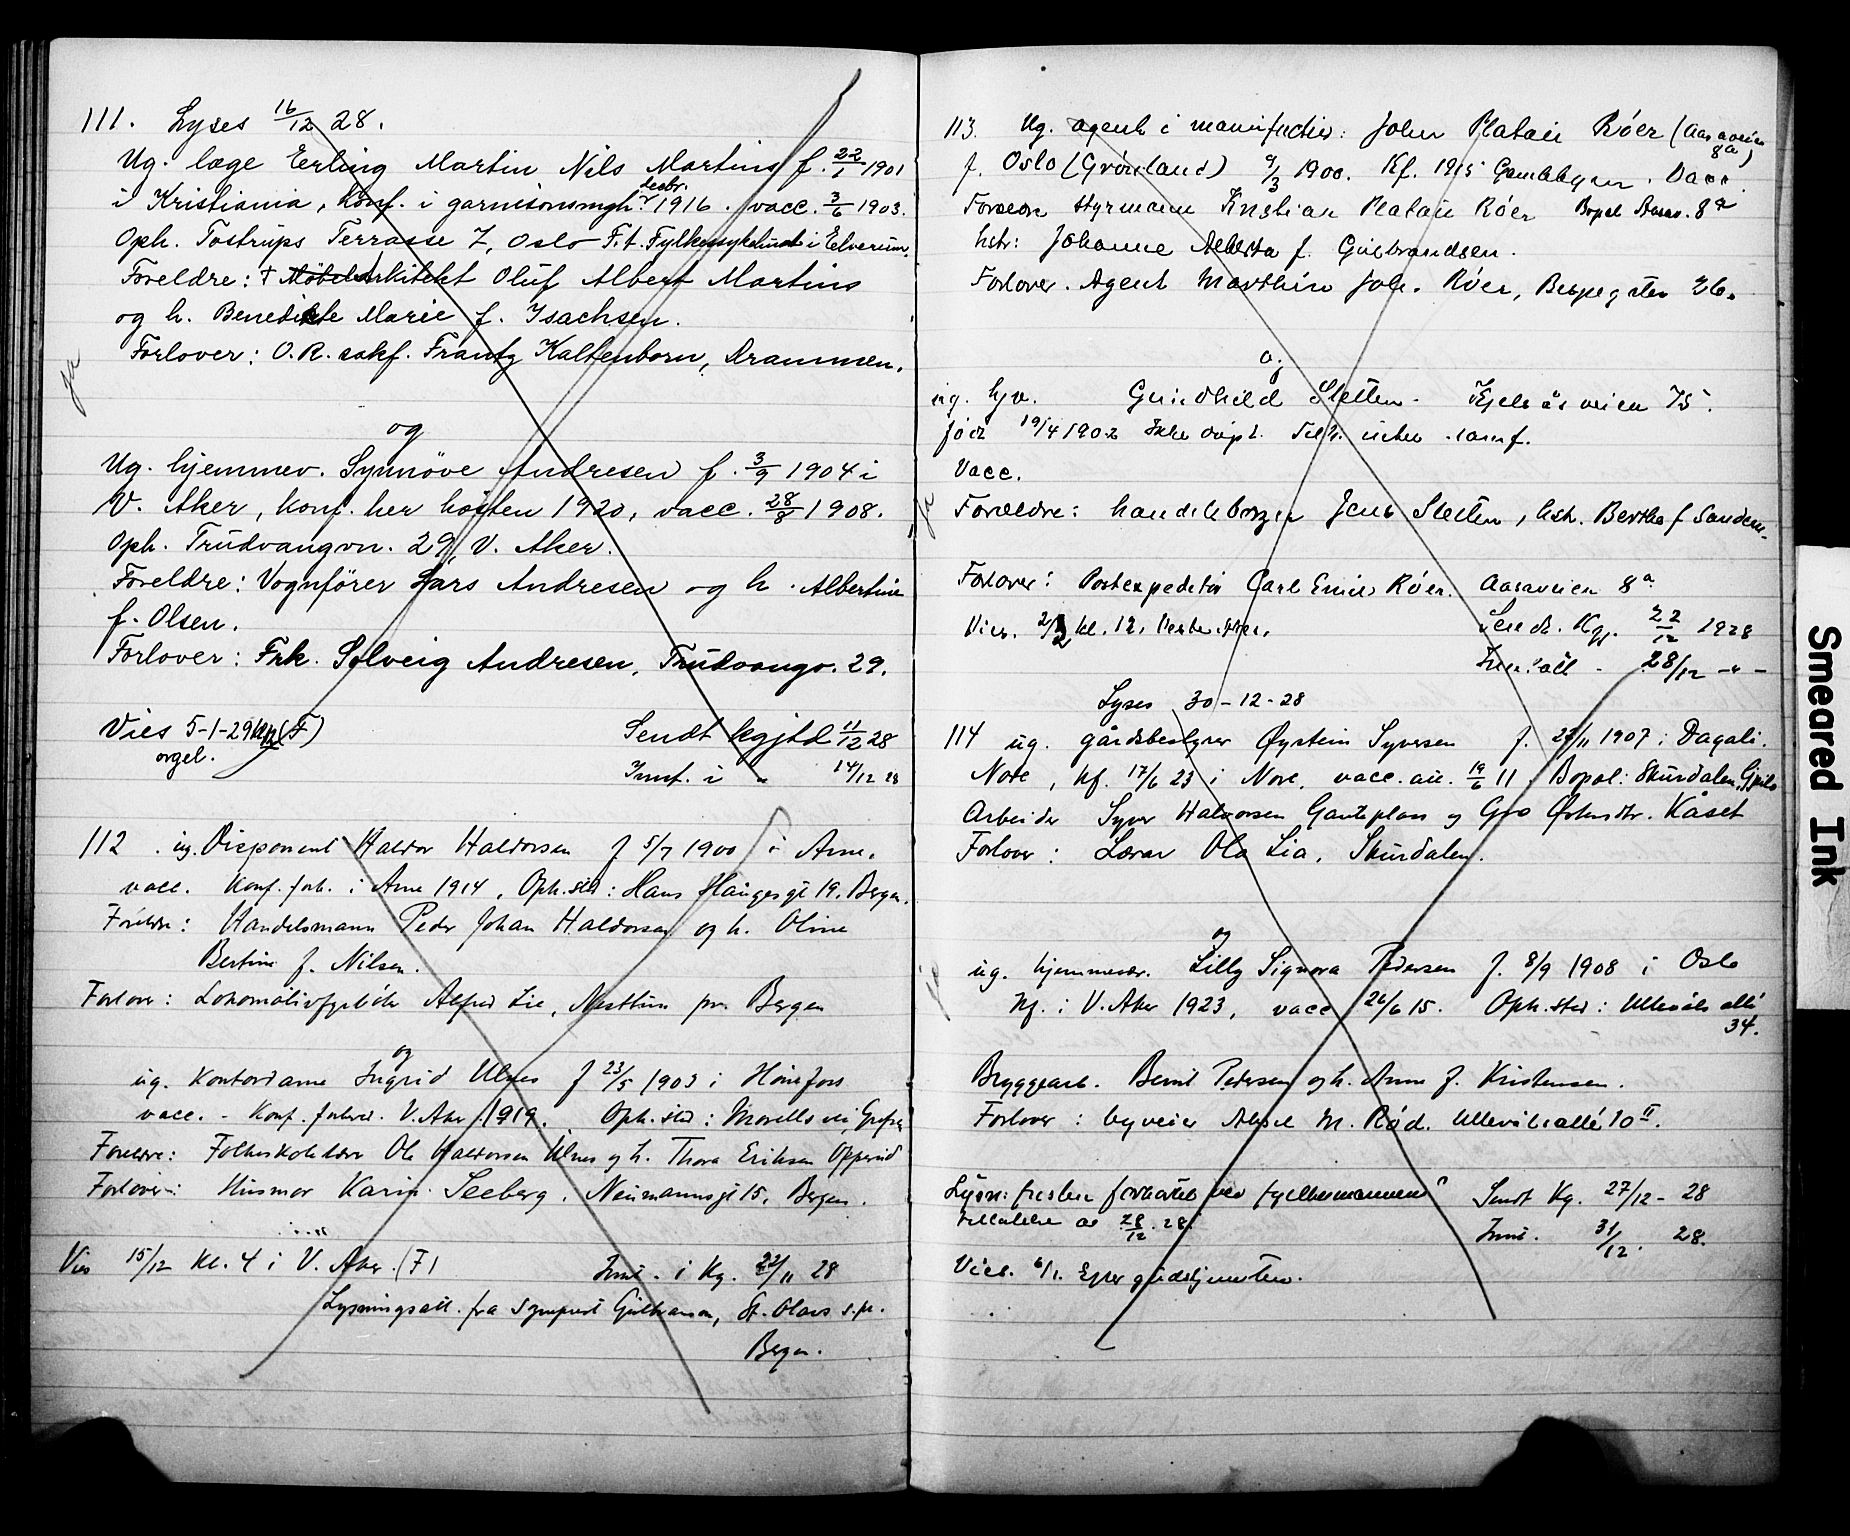 111. Lyses 16/12 28.
Ug. læge Erling Martin Nils Martins f. 22/1 1901
i Kristiania, konf. i garnisonsmgh. 1916. vacc. 3/6 1903.
Oph. Tostrups Terrasse 7, Oslo F.t. Fylkessykehuset i Elverum.
Foreldre: † Arkitekt Oluf Albert Martins
og h. Benedikte Marie f. Isachsen.
Forlover: O.R. sakf. Frantz Kaltenborn, Drammen.
ja
og
Ug. hjemmev. Synnöve Andresen f. 3/9 1904 i
V. Aker, konf. her hösten 1920, vacc. 28/8 1908.
Oph. Trudvangvn. 29, V. Aker.
Foreldre: Vognförer Lars Andresen og h. Albertine
f. Olsen.
Forlover: Frk. Solveig Andresen, Trudvangv. 29.
Vies 5-1-29 (F)
orgel.
Sendt kgjtd 11/12 28
Innf. i " 14/12 28
112. ug. Disponent Haldor Haldorsen f 5/7 1900 i Arne.
vacc. Konf. forh. i Arne 1914, Oph.sted: Hans Haugesgt 19, Bergen.
Foreldre: Handelsmann Peder Johan Haldorsen og h. Oline
Bertine f. Nilsen.
Forlover: Lokomotivfyrböter Alfred Lie, Nesttun pr. Bergen
og
ug. Kontordame Ingrid Ulnes f 23/5 1903 i Hönefoss
vacc. - Konf. forhed. V. Aker 1919. Oph.sted: Morells vei, Grefsen
Foreldre: Folkeskolelærer Ole Haldorsen Ulnes og h. Thora Eriksen Opperud
Forlover: Husmor Karin Seeberg, Neumannsgt 15, Bergen.
Vies 15/12 Kl. 4 i V. Aker. (F)
Innf. i Kg. 22/11 28
Lysningsatt. fra sogneprest Gulbranson, St. Olavs s.pr.
Bergen.
113. Ug. agent i manufactur: John Platou Röer (Aasaveien
8a)
f. Oslo (Grönland) 9/3 1900. Kf. 1915 Gamlebyen. Vacc.
Forældre styrmann Kristian Platou Röer Bopel Aasav. 8a
hstr: Johanne Alberta f. Gulbrandsen.
Forlover. Agent Marthin Joh. Röer, Bergsgaten 26.
og
ug. hjv. Gundhild Sletten - Kjelsåsveien 75.
född 19/4 1902 Ikke döpt. Tilh. intet samf.
Vacc.
ja
Forældre: handelsborger Jens Sletten, hstr. Bertha f Sandem.
Forlover: Postexpeditör Carl Emil Röer. Aasaveien 8a
Vies. kl. 12. Vestre Aker.
Sendt. Kgj. 22/12 1928
Innf. att - 28/12 -"-
Lyses 30-12-28
114 ug. gårdsbestyrer Øystein Syversen f. 27/11 1907 i Dagali.
Nore, kf. 17/6 23 i Nore, vacc. att. 19/6 11. Bopel: Skurdalen, Geilo
Arbeider Syver Halvorsen Gauteplass og Gro Östensdtr. Kåset
Forlover: Lærer Ola Lia, Skurdalen.
og
ug. hjemmevær. Lilly Signora Pedersen f. 8/9 1908 i Oslo
Kf. i V. Aker 1923, vacc 26/6 15. Oph.sted: Ullevåls allé
34.
Bryggearb. Bernt Pedersen og h. Anna f. Kristensen.
Forlover: byveier Aksel M. Röd. Ullevålsallé 10 II.
Lysn: fristen forkortet ved fylkesmannens
tillatelse av 28/12. 28.
Sendt Kg. 27/12 - 28
Innf. 31/12. 28.
Vies. 6/1. Efter gudstjenesten.
Smeared Ink